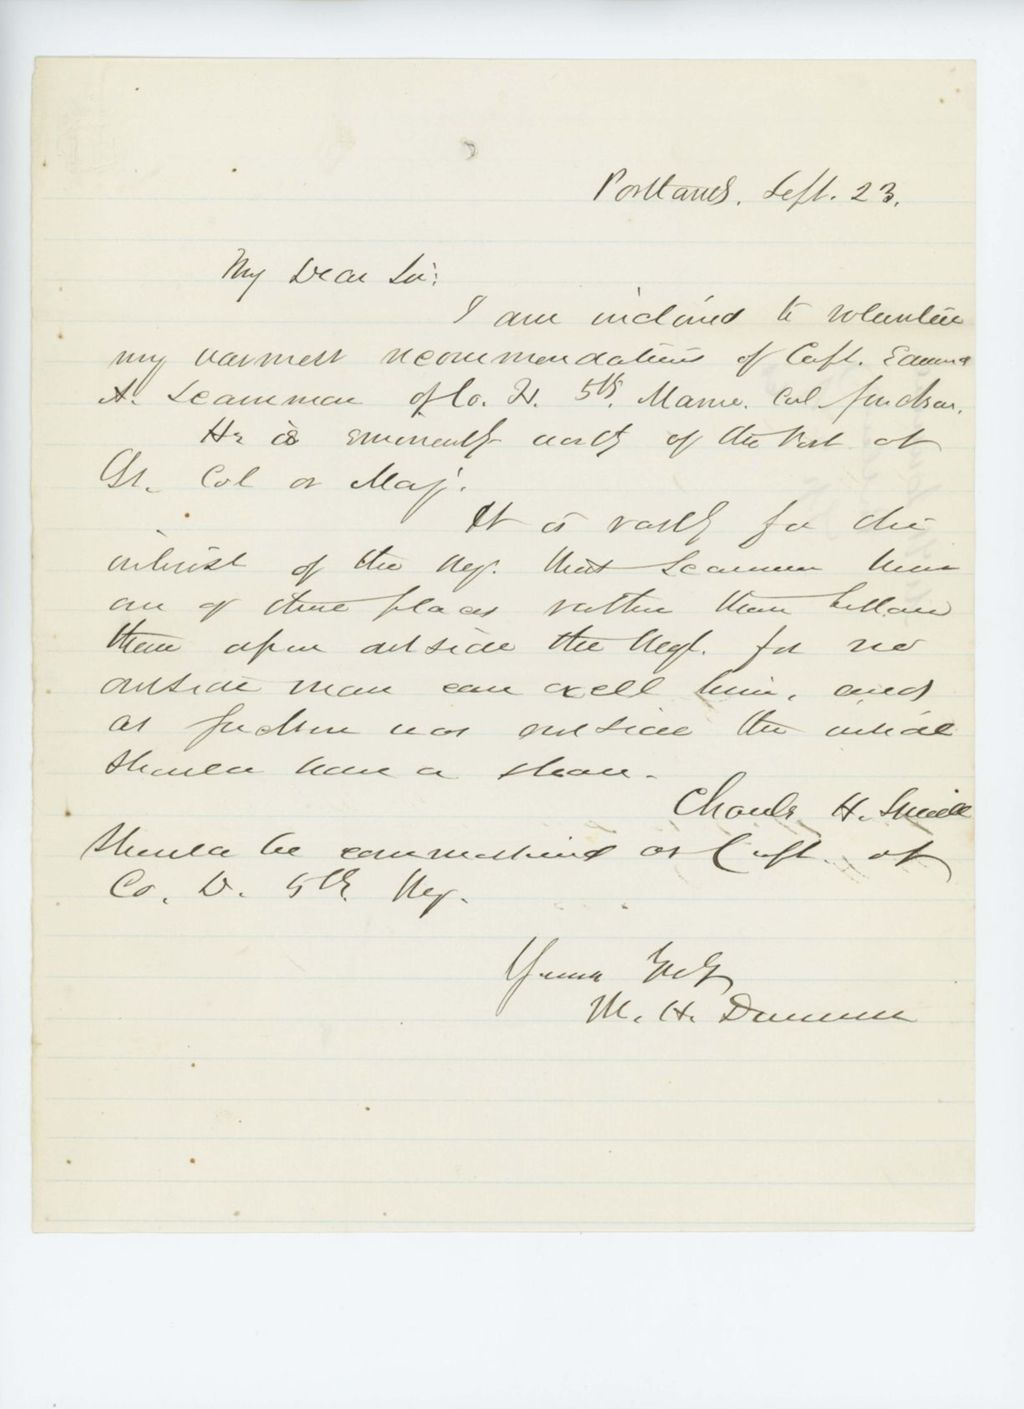 Portland, Sept. 23.
My Dear Sir:
I am inclined to volunteer
my warmest recommendations of Capt. Edward
A. Scamman of Co. H. 5th. Maine. Col Jackson.
He is eminently worthy of the Post of
Lt. Col or Maj.
It is vastly for the
interest of the Reg. that Scamman have
one of these places rather than bestow
them upon outside the Regt. for no
outside man can excell him, and
as Jackson was outside the inside
should have a share.
Charles H. Small
should be commissioned as Capt. of
Co. D. 5th Reg.
Yours
M. H. Dunnell